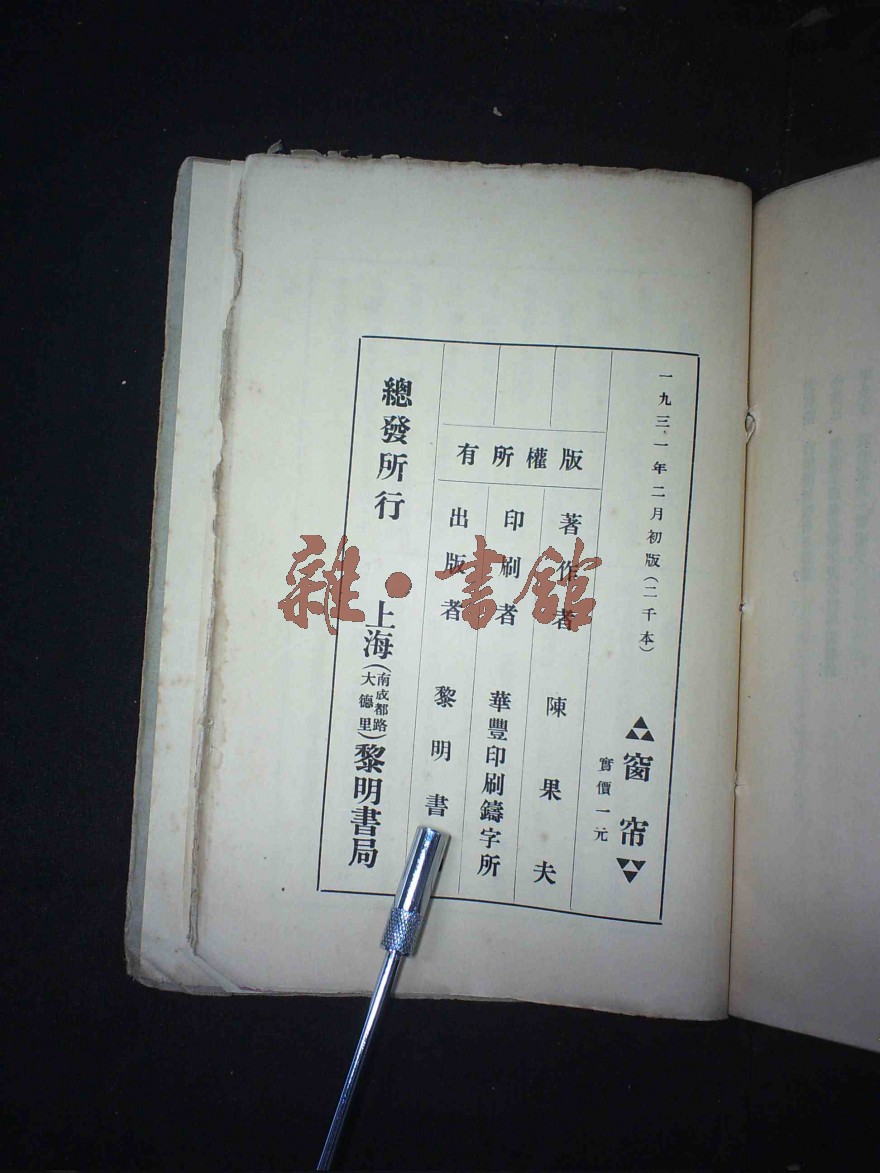 一九三一年二月初版(二千本)
窗帘
實價一元
版權所有
著作者 陳果夫
印刷者 華豐印刷鑄字所
出版者 黎明書
總發所行 上海(南成都路大德里)黎明書局
雜·書館